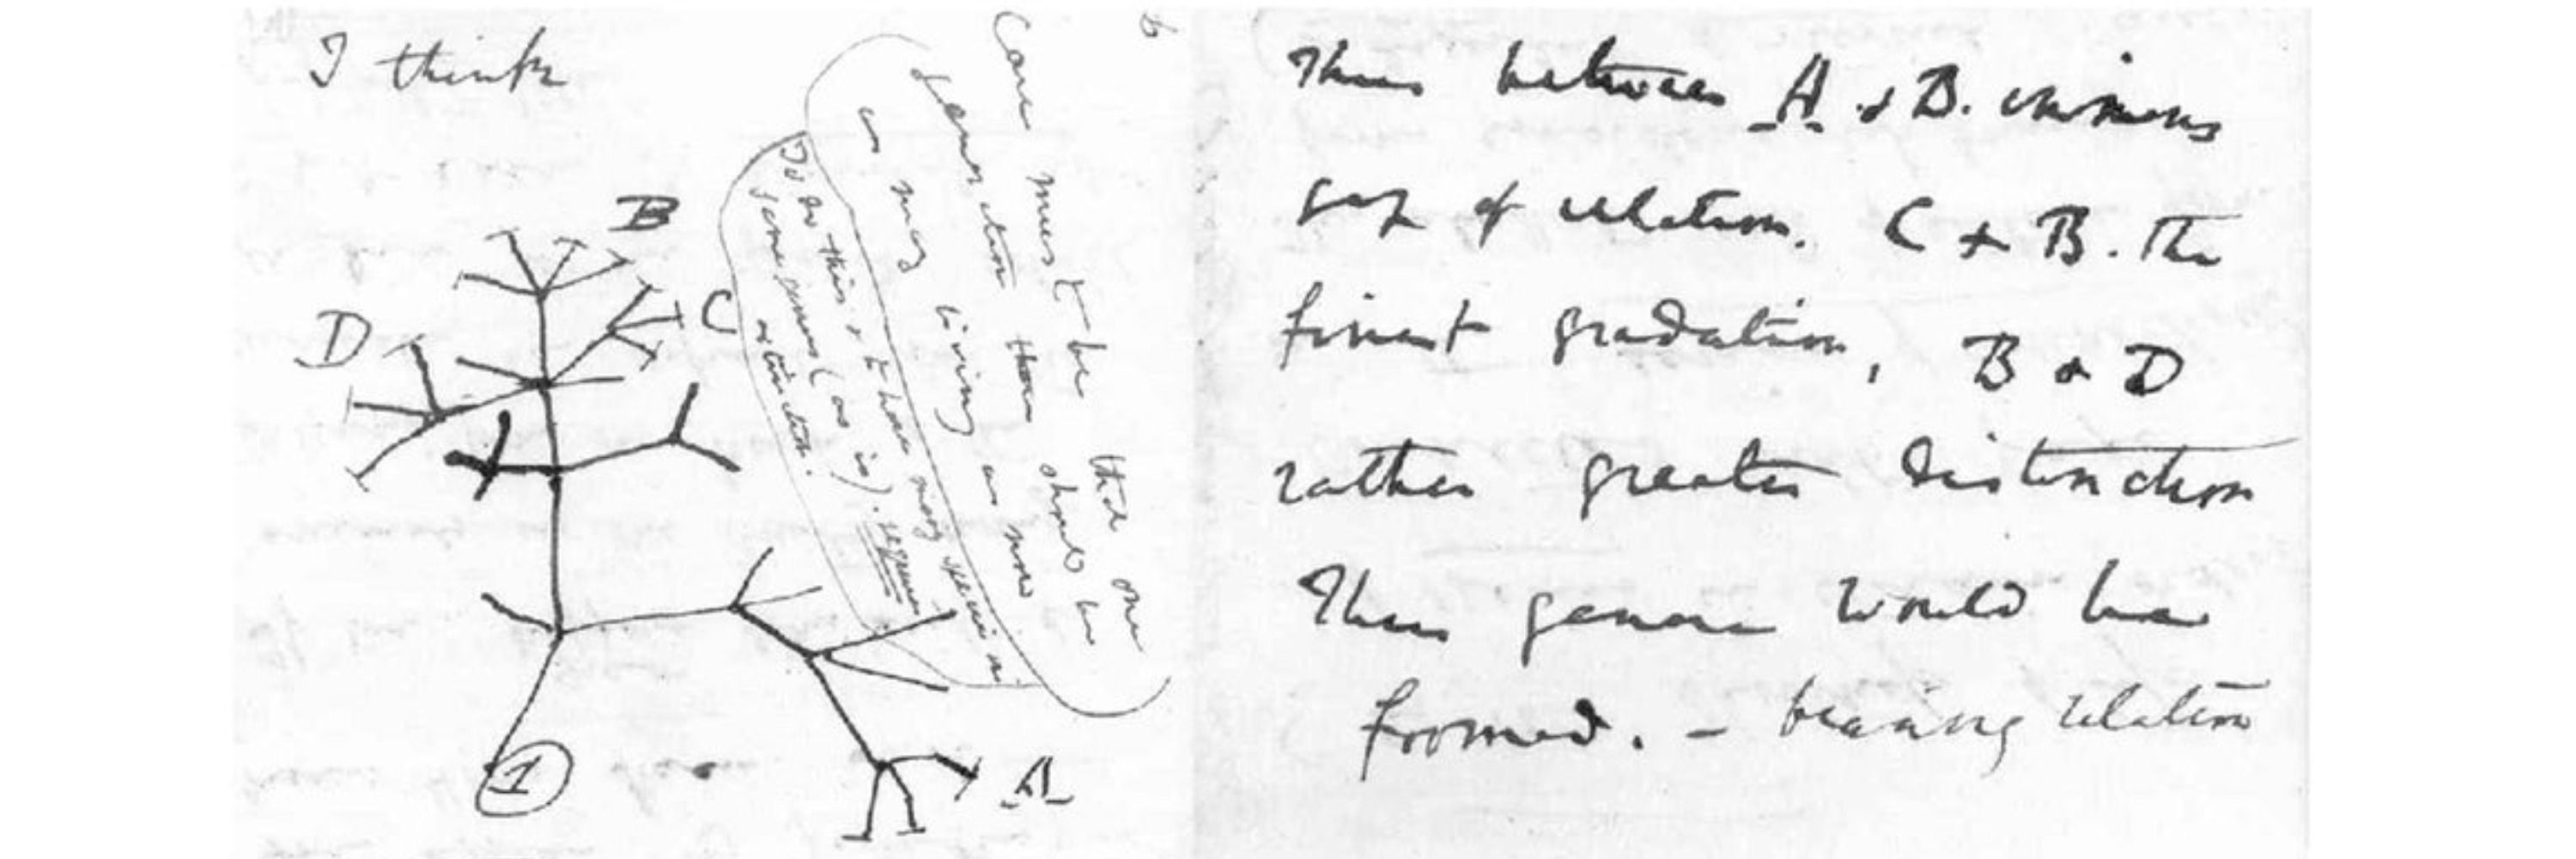 I think
B
D
C
1
A
Case must be that one
generation then should be
as many living as now
To do this & to have many species in
same genus (as is). requires
extinction.
Thus between A & B. immens
gap of relation. C & B. The
finest gradation, B & D
rather greater distinction
Thus genera would be
formed. — bearing relation